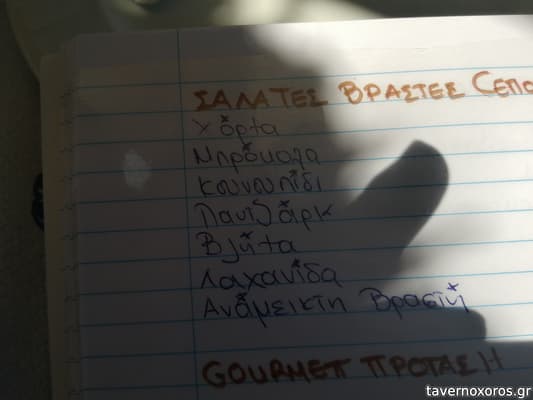 ΣΑΛΑΤΕΣ ΒΡΑΣΤΕΣ CΕΠΟ
Χόρτα
Μπρόκολα
Κουνουπίδι
Παντζάρι
Βλήτα
Λαχανίδα
Ανάμεικτη Βραστή
GOURMET ΠΡΟΤΑΣΗ
tavernoxoros.gr